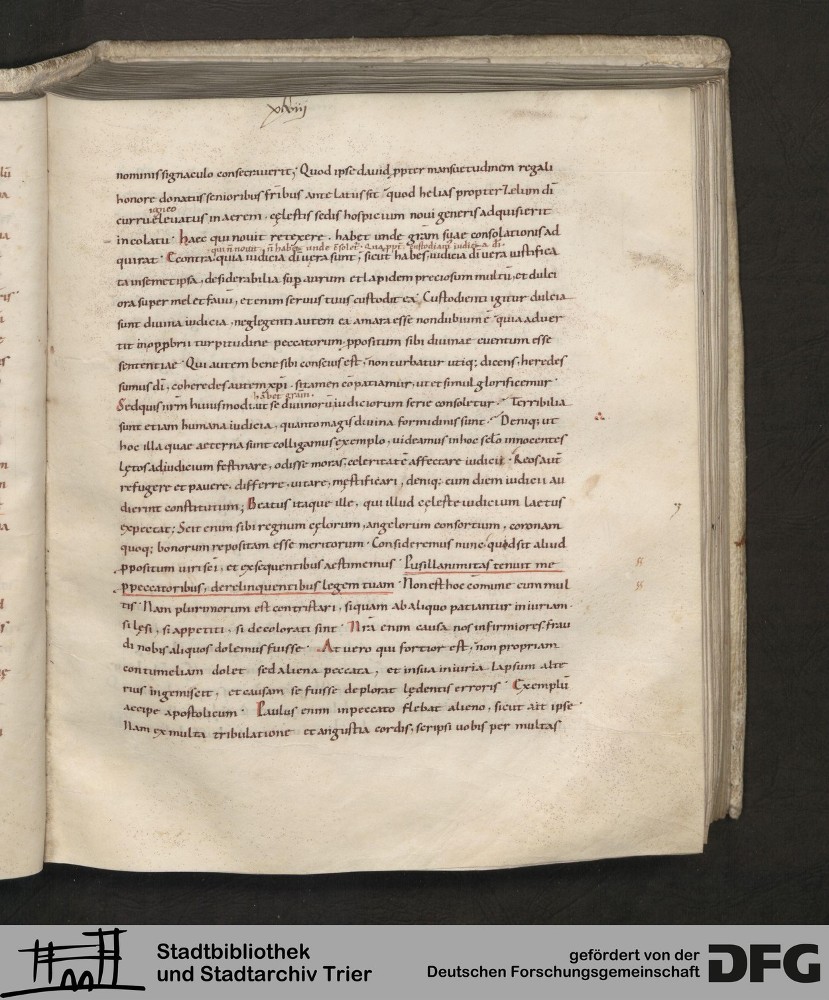 xlviii
nominis signaculo consecrauerit; Quod ipse dauid ppter mansuetudinem regali
honore donatus senioribus fribus antelatus sit quod helias propter zelum di
igneo
curru eleuatus in aerem, cęlestis sedis hospicium noui generis adquisierit
incolatu. haec qui nouit retexere. habet unde gram suae consolationis ad
qui n nouit, n habet unde
quirat. Econtra quia iudicia di uera sunt; sicut habes, iudicia di uera iustifica
ta in semetipsa, desiderabilia sup aurum et lapidem preciosum multu, et dulci
ora super mel et fauu, etenim seruus tuus custodit ea. Custodienti igitur dulcia
sunt diuina iudicia, neglegenti autem ea amara esse non dubium ē quia aduer
tit in opprbrii turpitudine peccatorum, ppositum sibi diuinae euentum esse
sententiae. Qui autem bene sibi conscius est, non turbatur utiq; dicens, heredes
sumus di, coheredes autem xpi. si tamen copatiamur, ut et simul glorificemur.
habet gram.
Sed quis nrm huiusmodi, ut se diuinoru iudiciorum serie consoletur. Terribilia
sunt etiam humana iudicia, quanto magis diuina formidinis sunt. Deniq; ut
hoc illa quae aeterna sunt colligamus exemplo, uideamus in hoc sclo innocentes
lętos ad iudicium festinare, odisse moras, celeritate affectare iudicii. Reos aut
refugere et pauere, differre, uitare, męstificari, deniq; cum diem iudicii au
dierint constitutum; Beatus itaque ille, qui illud cęleste iudicium laetus
expectat; Scit enim sibi regnum cęlorum, angelorum consortium, coronam
quoq; bonorum repositam esse meritorum. Consideremus nunc, quid sit aliud
ppositum uiri sci, et exsequentibus aestimemus. Pusillanimitas tenuit me
p peccatoribus, derelinquentibus legem tuam. Non est hoc comune cum mul
tis. Nam plurimorum est contristari, si quam ab aliquo patiantur iniuriam.
si lęsi, si appetiti, si decolorati sint. Nra enim causa nos infirmiores frau
di nobis aliquos dolemus fuisse. At uero qui fortior est, non propriam
contumeliam dolet sed aliena peccata, et in sua iniuria lapsum alte
rius ingemiscit, et causam se fuisse deplorat lędentis erroris. Exemplu
accipe apostolicum. Paulus enim in peccato flebat alieno, sicut ait ipse.
Nam ex multa tribulatione et angustia cordis, scripsi uobis per multas
Stadtbibliothek
und Stadtarchiv Trier
gefördert von der
Deutschen Forschungsgemeinschaft
DFG